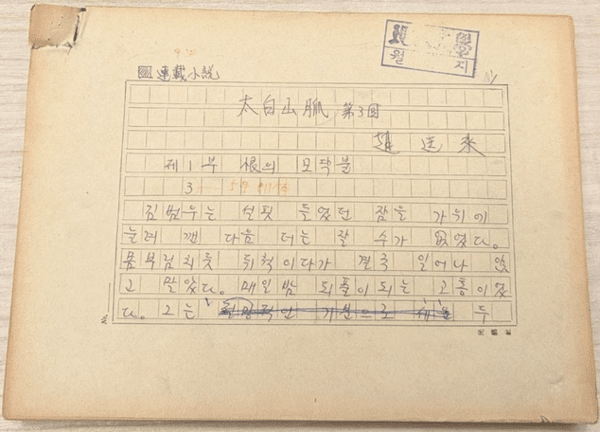 連載小說
太白山脈 第3回
趙廷來
제1부 恨의 모닥불
3
김범우는 설핏 들었던 잠을 가위에
눌려 깬 다음 더는 잘 수가 없었다.
몸부림치듯 뒤척이다가 결국 일어나 앉
고 말았다. 매일밤 되풀이 되는 고통이었
다. 그는 두